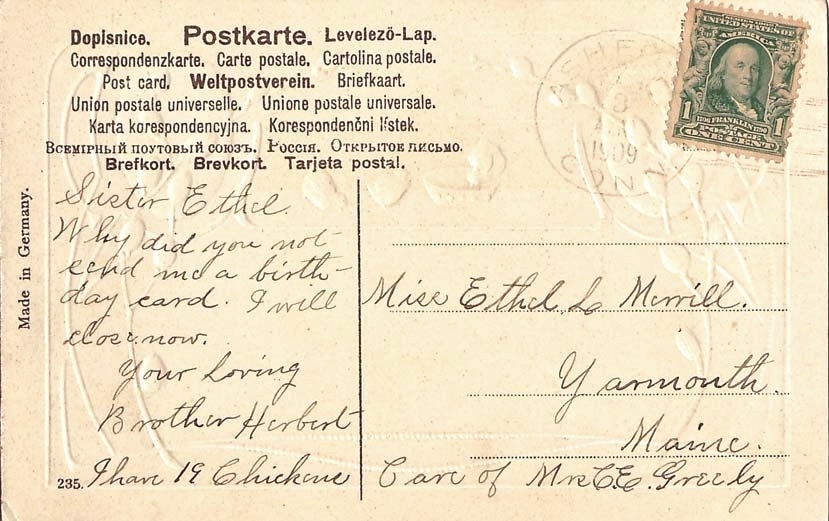 Dopisnice. Postkarte. Levelezö-Lap.
Correspondenzkarte. Carte postale. Cartolina postale.
Post card. Weltpostverein. Briefkaart.
Union postale universelle. Unione postale universale.
Karta korespondencyjna. Korespondenčni lístek.
Всемірный поутовый союзъ. Россія. Открытое письмо.
Brefkort. Brevkort. Tarjeta postal.
Made in Germany.
Sister Ethel.
Why did you not
send me a birth-
day card. I will
close now.
Your Loving
Brother Herbert
235.
I have 19 Chickens
1909
CONN
UNITED STATES OF
AMERICA
1706 FRANKLIN 1790
1 POSTAGE 1
ONE CENT
Miss Ethel L Merrill.
Yarmouth.
Maine.
Care of Mrs C.E. Greely